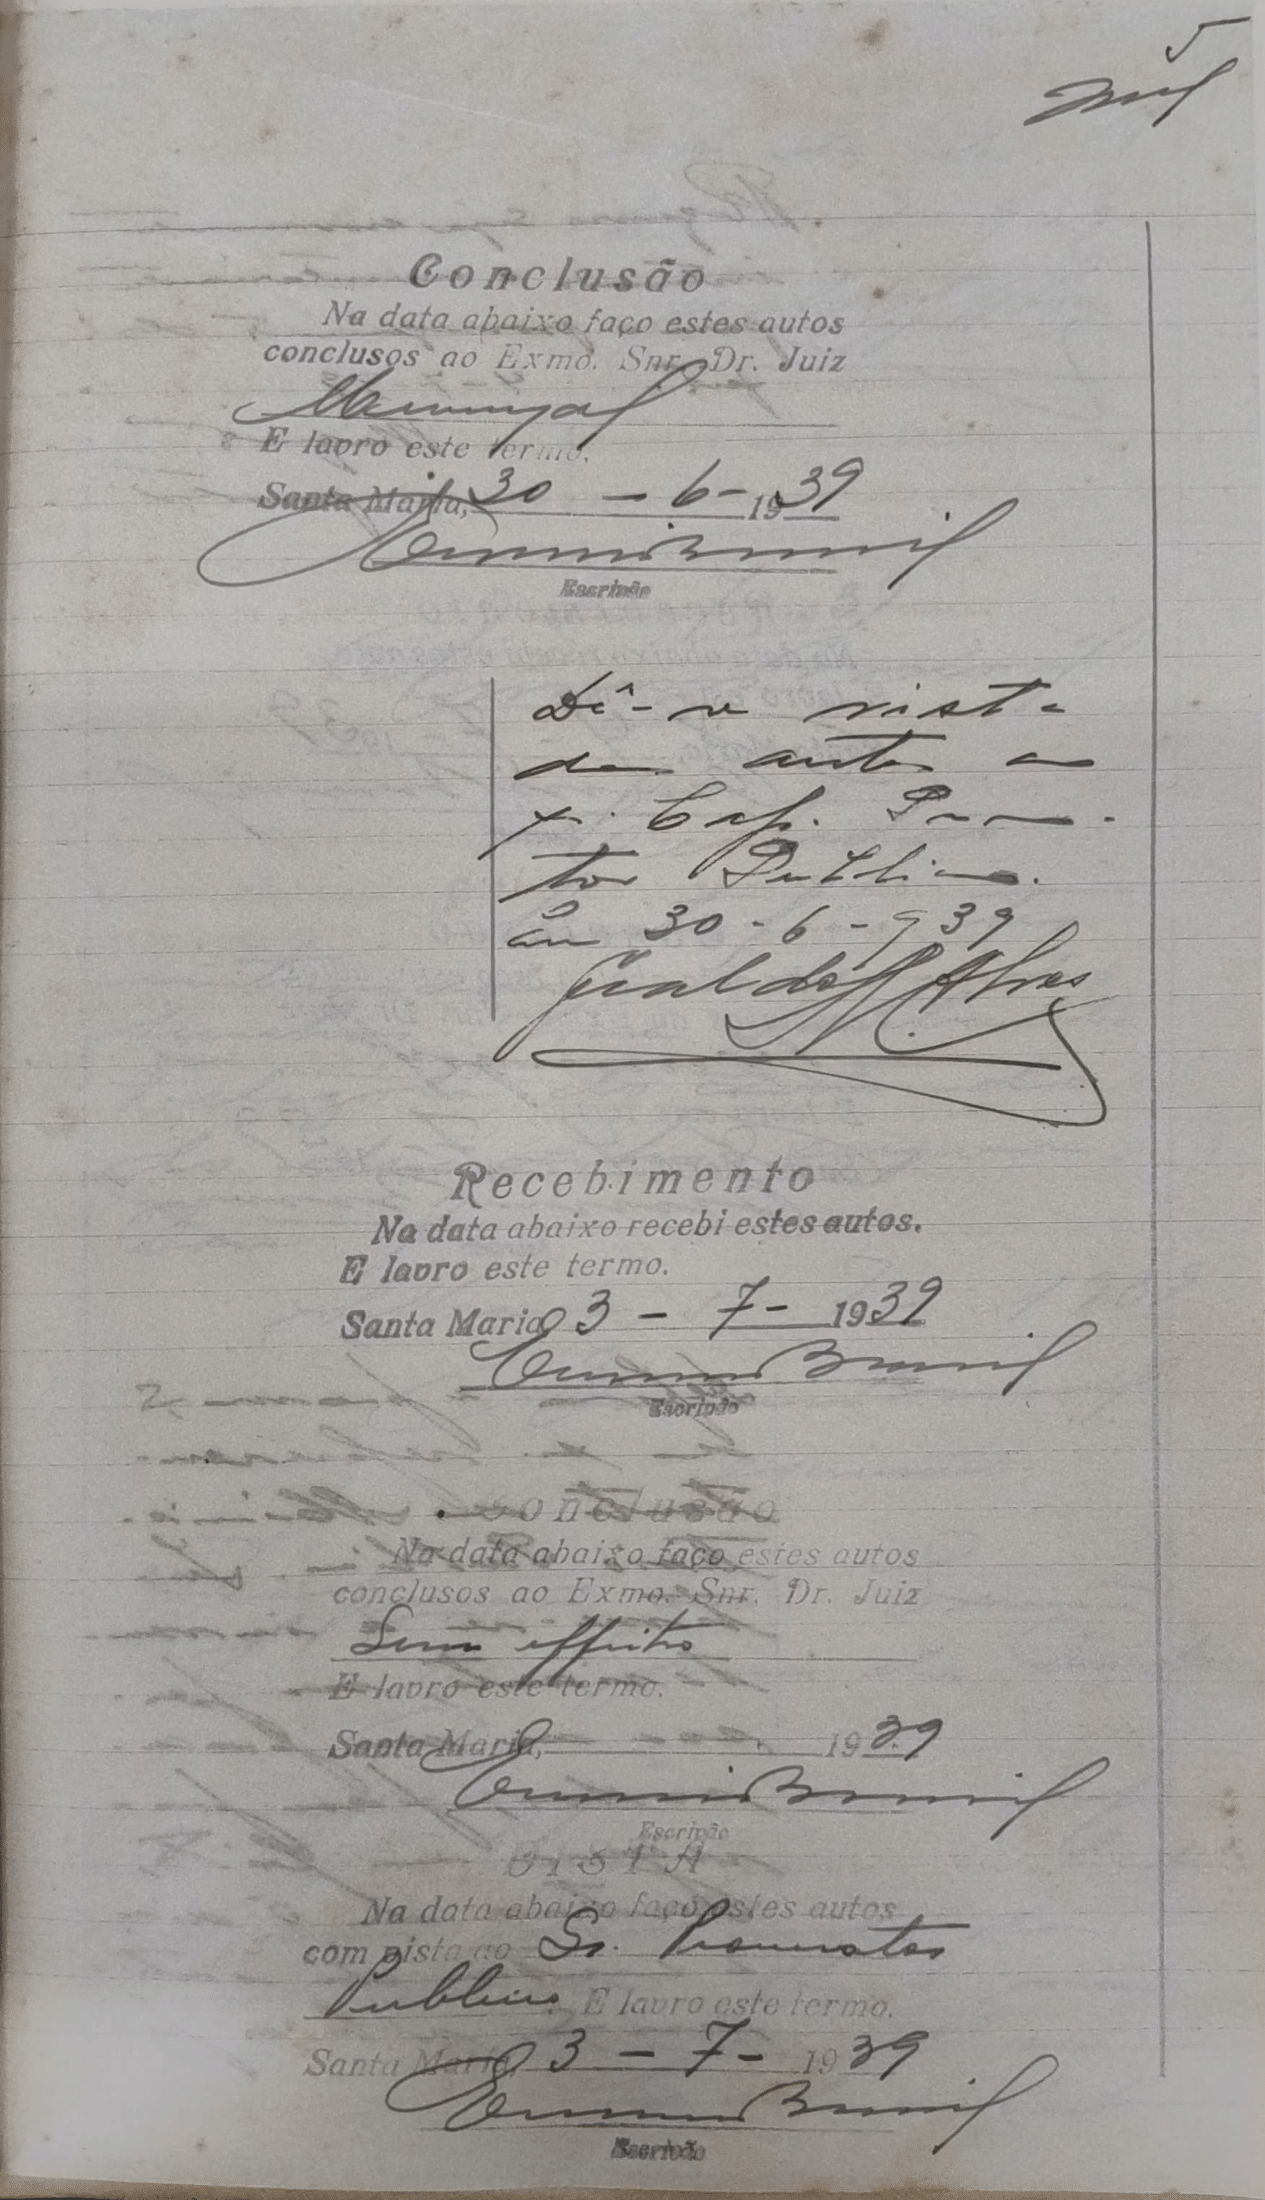 5
Conclusão
Na data abaixo faço estes autos
conclusos ao Exmo. Snr. Dr. Juiz
Municipal
E lavro este termo.
Santa Maria, 30 - 6 - 1939
Escrivão
Dê-se vista
dos autos ao
Cap. Promo-
tor Publico.
Em 30-6-939
Recebimento
Na data abaixo recebi estes autos.
E lavro este termo.
Santa Maria 3 - 7 - 1939
Escrivão
Conclusão
Na data abaixo faço estes autos
conclusos ao Exmo. Snr. Dr. Juiz
Sem effeito
E lavro este termo.
Santa Maria, 1939
Escrivão
VISTA
Na data abaixo faço estes autos
com vista ao Sr. Promotor
Publico. E lavro este termo.
Santa Maria, 3 - 7 - 1939
Escrivão